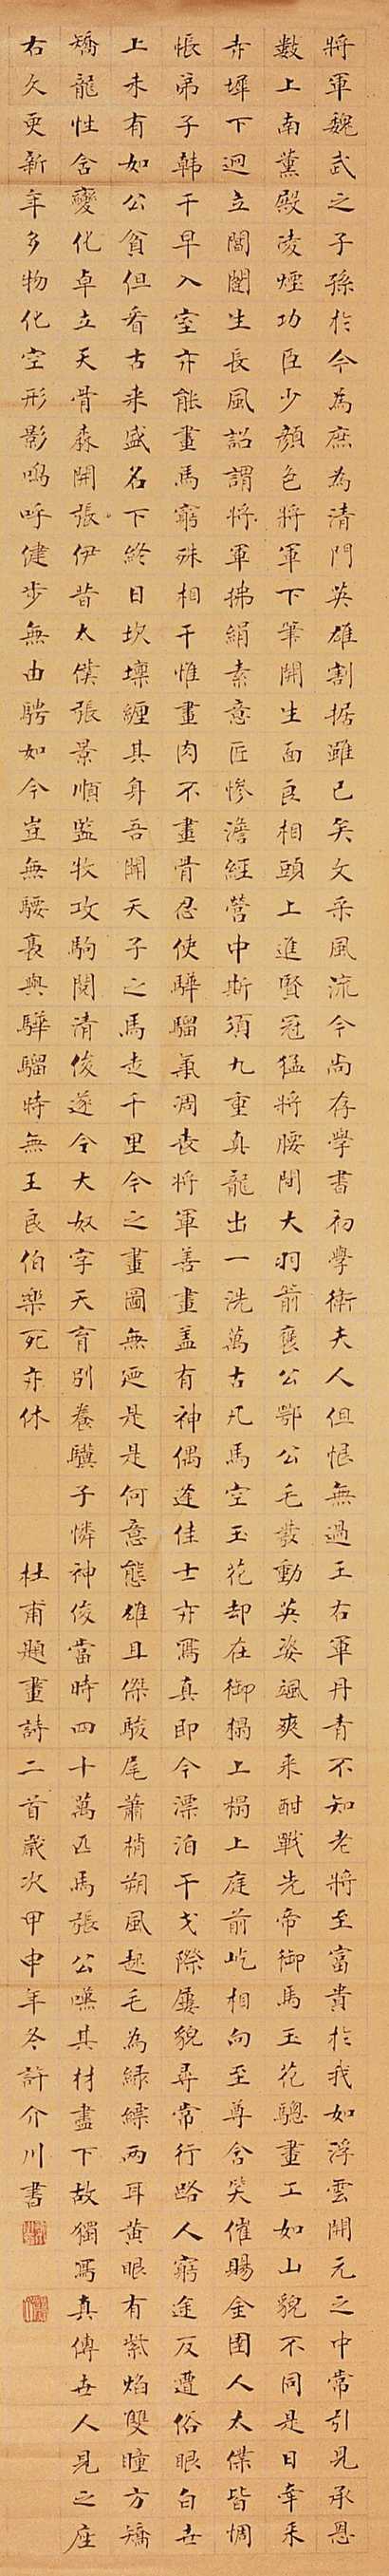 將軍魏武之子孫於今為庶為清門英雄割據雖已矣文采風流今尚存學書初學衛夫人但恨無過王右軍丹青不知老將至富貴於我如浮雲開元之中常引見承恩
數上南薰殿凌煙功臣少顏色將軍下筆開生面良相頭上進賢冠猛將腰間大羽箭褒公鄂公毛髮動英姿颯爽来酣戰先帝御馬玉花驄畫工如山貌不同是日牽来
赤墀下迥立閶闔生長風詔謂將軍拂絹素意匠慘澹經營中斯須九重真龍出一洗萬古凡馬空玉花却在御榻上榻上庭前屹相向至尊含笑催賜金圉人太僕皆惆
悵弟子韓干早入室亦能畫馬窮殊相干惟畫肉不畫骨忍使驊騮氣凋喪將軍善畫盖有神偶逢佳士亦寫真即今漂泊干戈際屢貌尋常行路人窮途反遭俗眼白世
上未有如公貧但看古来盛名下終日坎壈纏其身吾聞天子之馬走千里今之畫圖無迺是是何意態雄且傑駿尾蕭梢朔風起毛為綠縹兩耳黃眼有紫焰雙瞳方矯
矯龍性含變化卓立天骨森開張伊昔太僕張景順監牧攻駒閱清俊遂令大奴字天育別養驥子憐神俊當時四十萬匹馬張公嘆其材盡下故獨寫真傳世人見之座
右久更新年多物化空形影嗚呼健步無由騁如今豈無騕褭與驊騮時無王良伯樂死亦休 杜甫題畫詩二首歲次甲申年冬許介川書